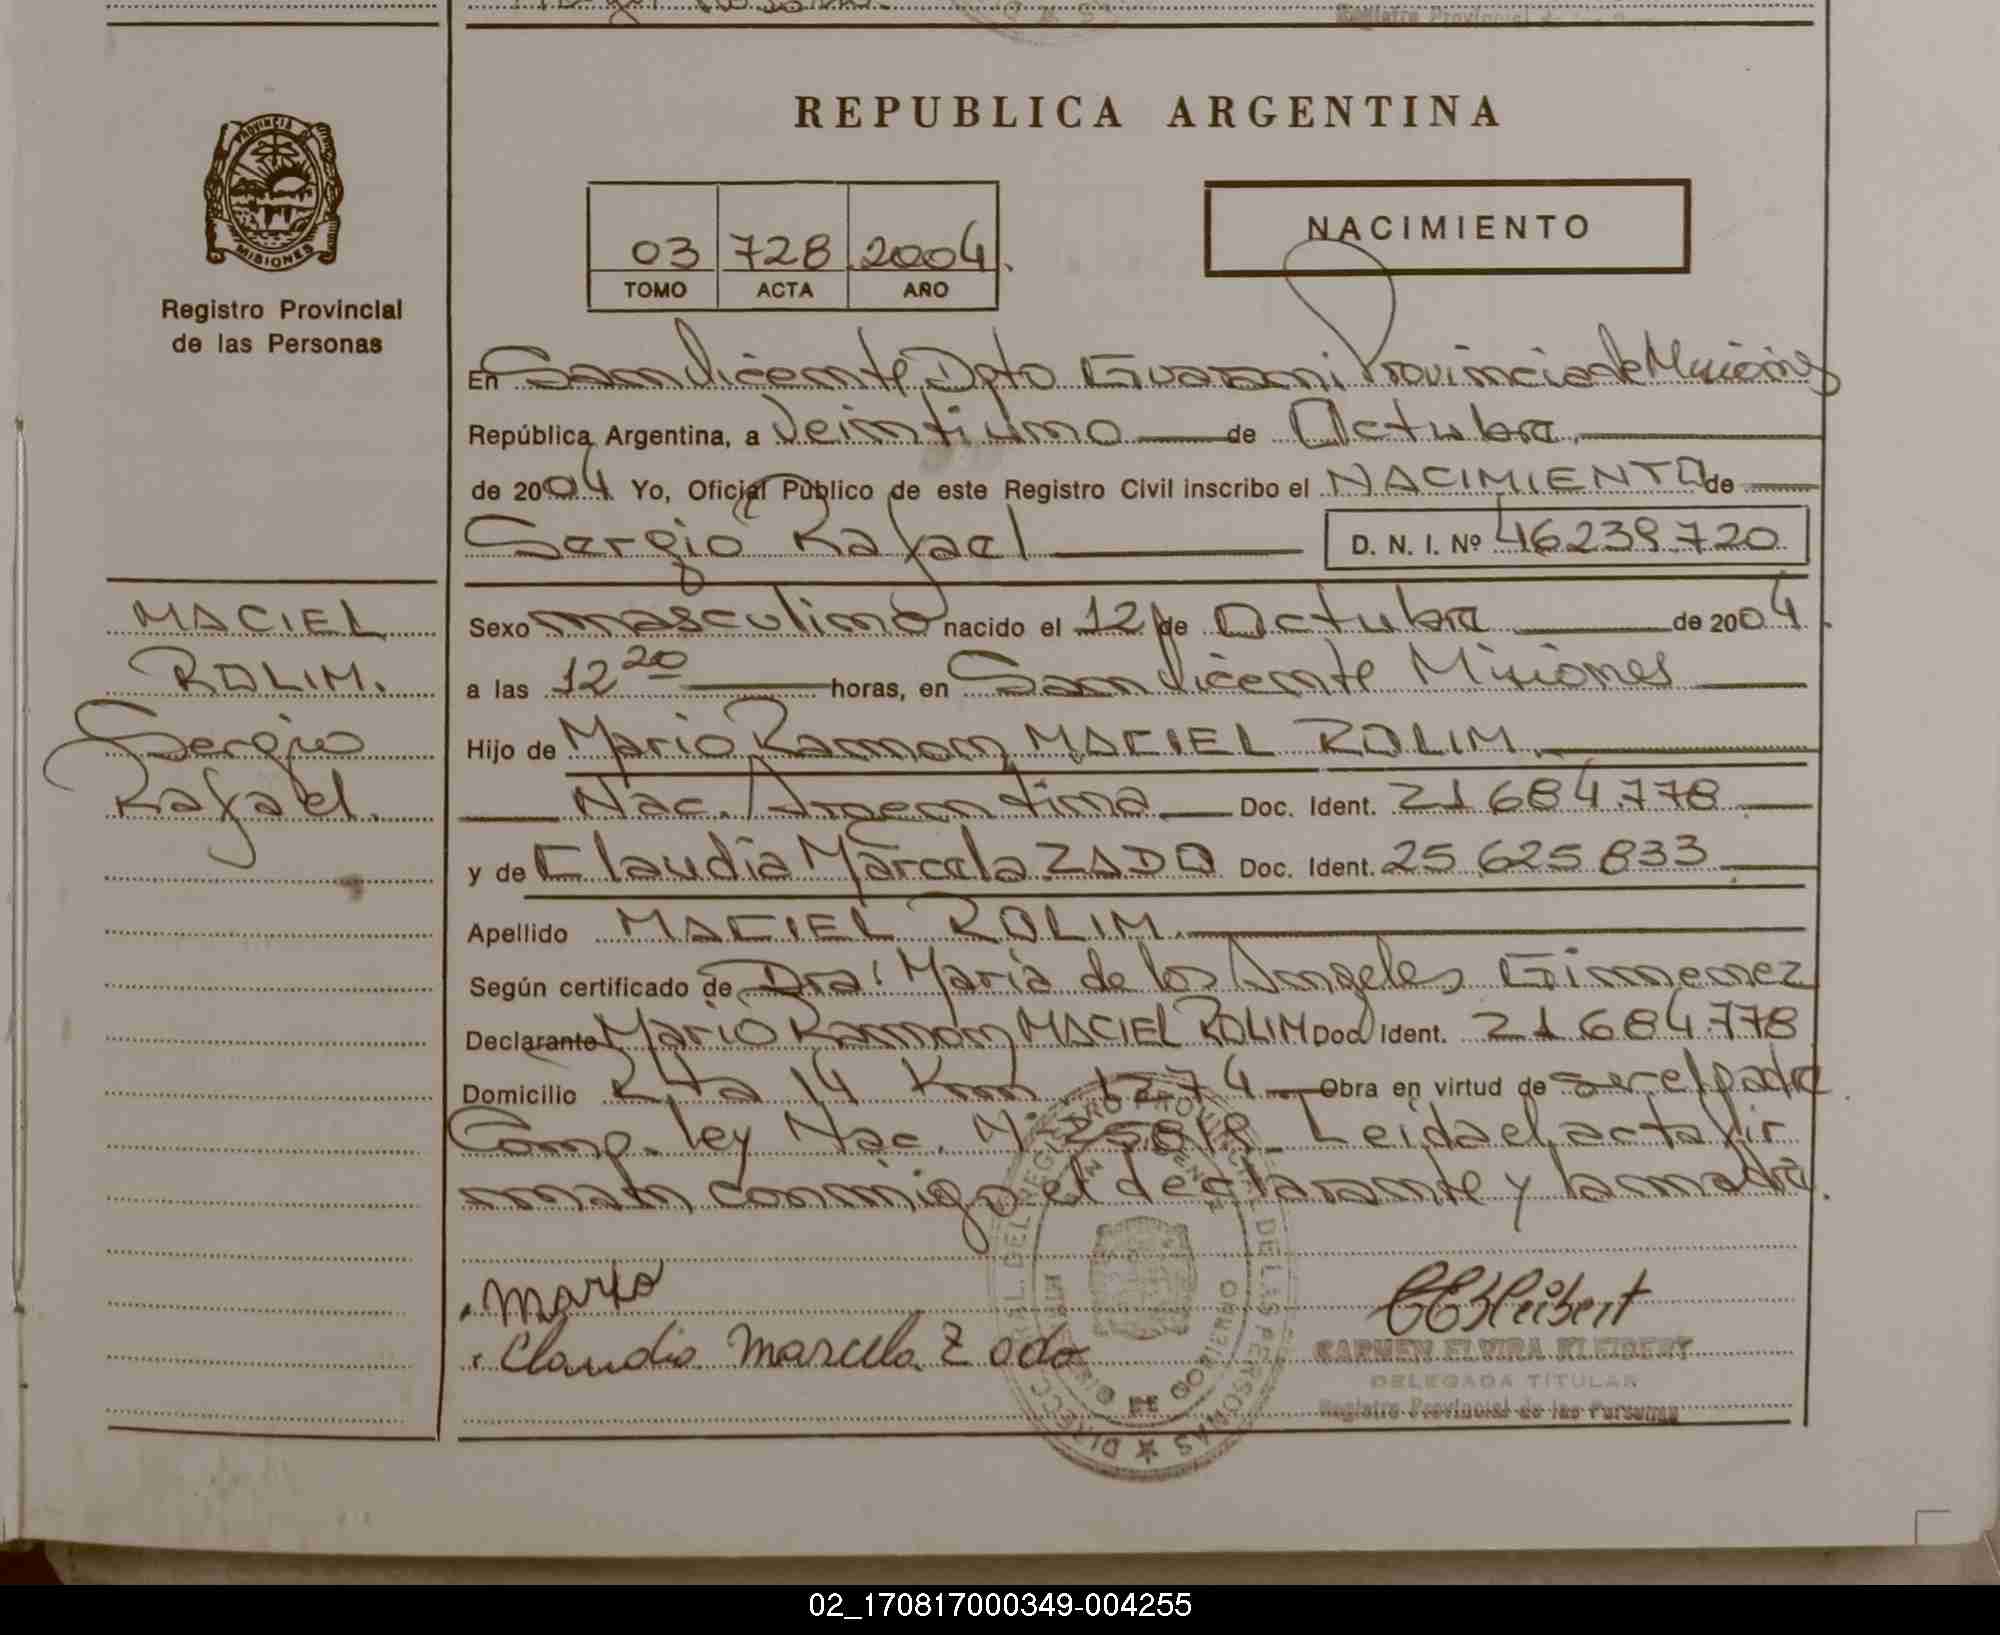 PROVINCIA
MISIONES
Registro Provincial
de las Personas
MACIEL
ROLIM.
Sergio
Rafael.
REPUBLICA ARGENTINA
03 728 2004.
TOMO ACTA AÑO
NACIMIENTO
En San Vicente Dpto Guarani Provincia de Misiones
República Argentina, a Veintiuno de Octubre
de 2004 Yo, Oficial Público de este Registro Civil inscribo el NACIMIENTO de
Sergio Rafael D. N. I. Nº 46239720
Sexo masculino nacido el 12 de Octubre de 2004.
a las 12 20 horas, en San Vicente Misiones
Hijo de Mario Ramon MACIEL ROLIM.
Nac. Argentina Doc. Ident. 21 684.778
y de Claudia Marcela ZADO Doc. Ident. 25 625 833
Apellido MACIEL ROLIM.
Según certificado de Dra: Maria de los Angeles Gimenez
Declarante Mario Ramon MACIEL ROLIM Doc. Ident. 21 684.778
Domicilio Rta 14 Km 1274 Obra en virtud de ser el padre
Comp. ley Nac. Nº 25819 Leida el acta fir
man conmigo el declarante y la madre.
Mario
Claudia Marcela Zado
CEKleibert
CARMEN ELVIRA KLEIBERT
DELEGADA TITULAR
Registro Provincial de las Personas
02_170817000349-004255